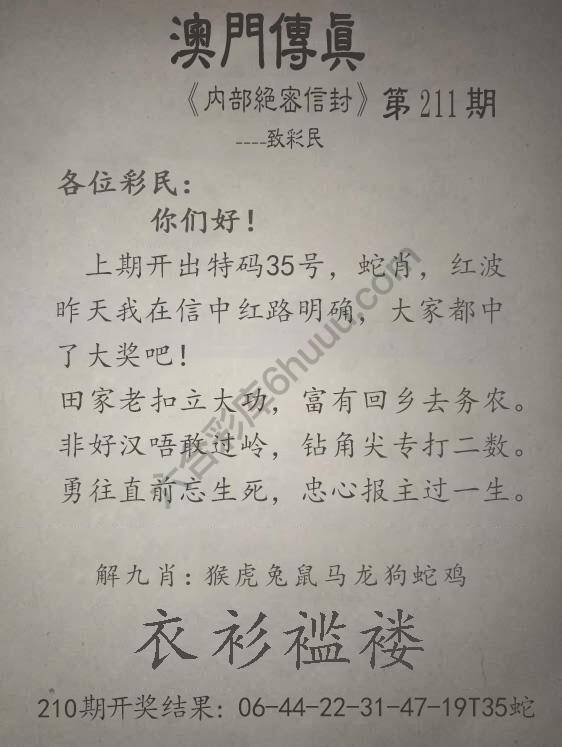 澳門傳眞
《内部絕密信封》第211期
----致彩民
各位彩民：
你们好！
上期开出特码35号，蛇肖，红波
昨天我在信中红路明确，大家都中
了大奖吧！
田家老扣立大功，富有回乡去务农。
非好汉唔敢过岭，钻角尖专打二数。
勇往直前忘生死，忠心报主过一生。
解九肖：猴虎兔鼠马龙狗蛇鸡
衣衫褴褛
210期开奖结果：06-44-22-31-47-19T35蛇
六合彩库6huuu.com